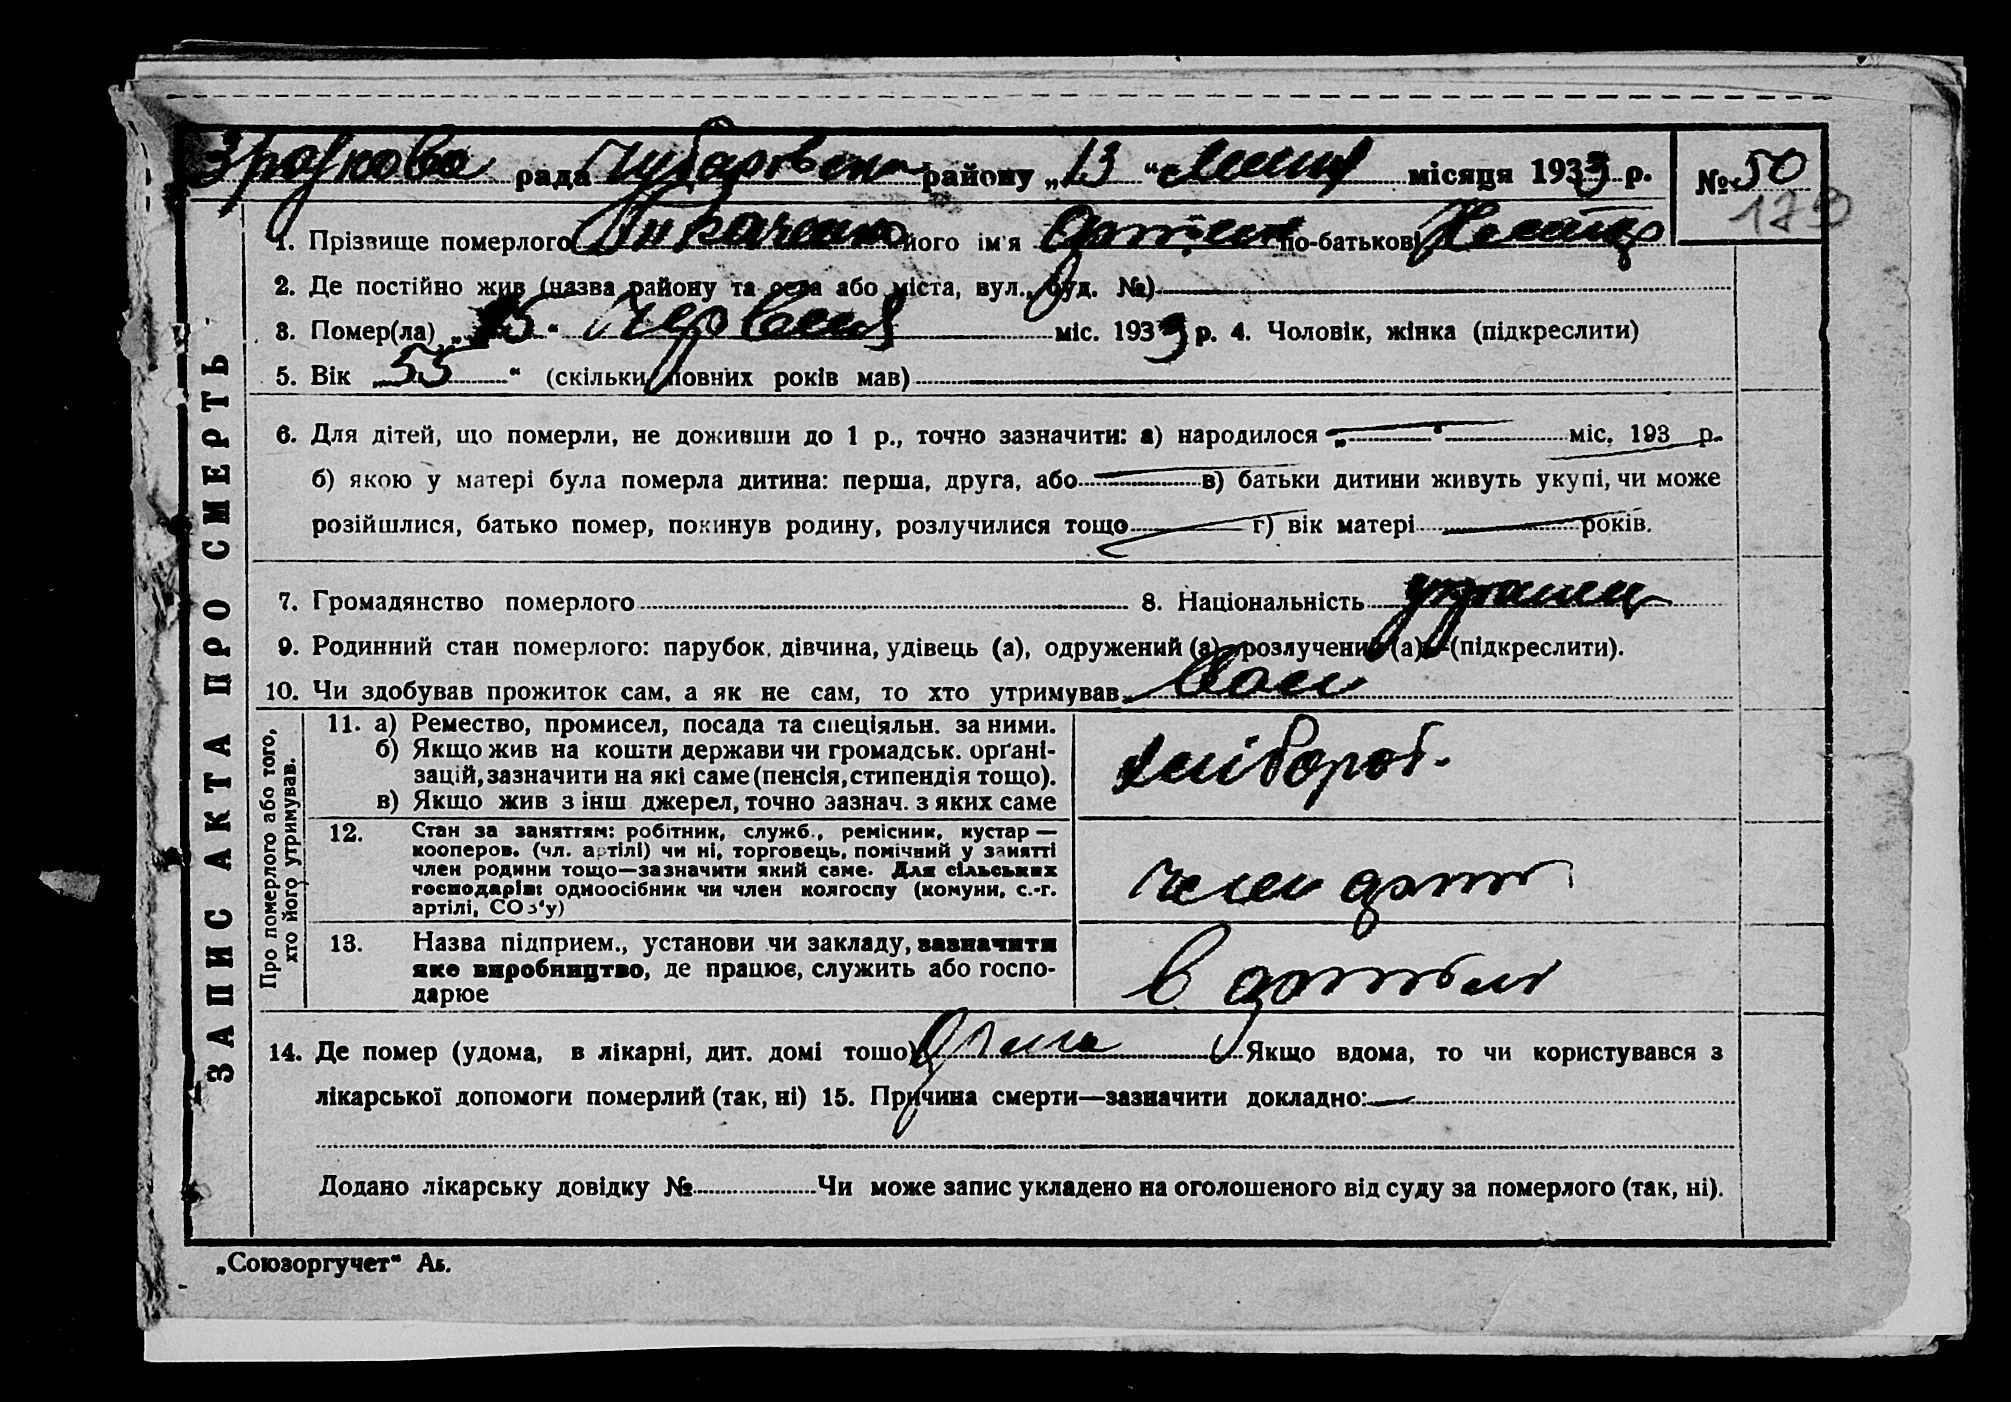 Зразкова рада Чубарівськ району „13“ липня місяця 1933 р. № 50
179
1. Прізвище померлого його ім'я Артем по-батькові
2. Де постійно жив (назва району та села або міста, вул., буд. №)
3. Помер(ла) „15“ Червня міс. 1933 р. 4. Чоловік, жінка (підкреслити)
5. Вік „55“ (скільки повних років мав)
6. Для дітей, що померли, не доживши до 1 р., точно зазначити: а) народилося „ “ міс. 193 р.
б) якою у матері була померла дитина: перша, друга, або в) батьки дитини живуть укупі, чи може
розійшлися, батько помер, покинув родину, розлучилися тощо г) вік матері років.
7. Громадянство померлого 8. Національність украинец
9. Родинний стан померлого: парубок, дівчина, удівець (а), одружений (а), розлучений (а) (підкреслити).
10. Чи здобував прожиток сам, а як не сам, то хто утримував Сам
11. а) Ремество, промисел, посада та спеціяльн. за ними.
б) Якщо жив на кошти держави чи громадськ. орґані-
зацій, зазначити на які саме (пенсія, стипендія тощо).
в) Якщо жив з інш джерел, точно зазнач. з яких саме
хлібороб.
12. Стан за заняттям: робітник, служб., ремісник, кустар —
кооперов. (чл. артілі) чи ні, торговець, помічний у занятті
член родини тощо—зазначити який саме. Для сільських
господарів: одноосібник чи член колгоспу (комуни, с.-г.
артілі, СОЗ'у)
член арт
13. Назва підприєм., установи чи закладу, зазначити
яке виробництво, де працює, служить або госпо-
дарює
в артели
14. Де помер (удома, в лікарні, дит. домі тощо) Дома Якщо вдома, то чи користувався з
лікарської допомоги померлий (так, ні) 15. Причина смерти—зазначити докладно:—
Додано лікарську довідку № Чи може запис укладено на оголошеного від суду за померлого (так, ні).
ЗАПИС АКТА ПРО СМЕРТЬ
Про померлого або того,
хто його утримував.
„Союзоргучет“ Аб.